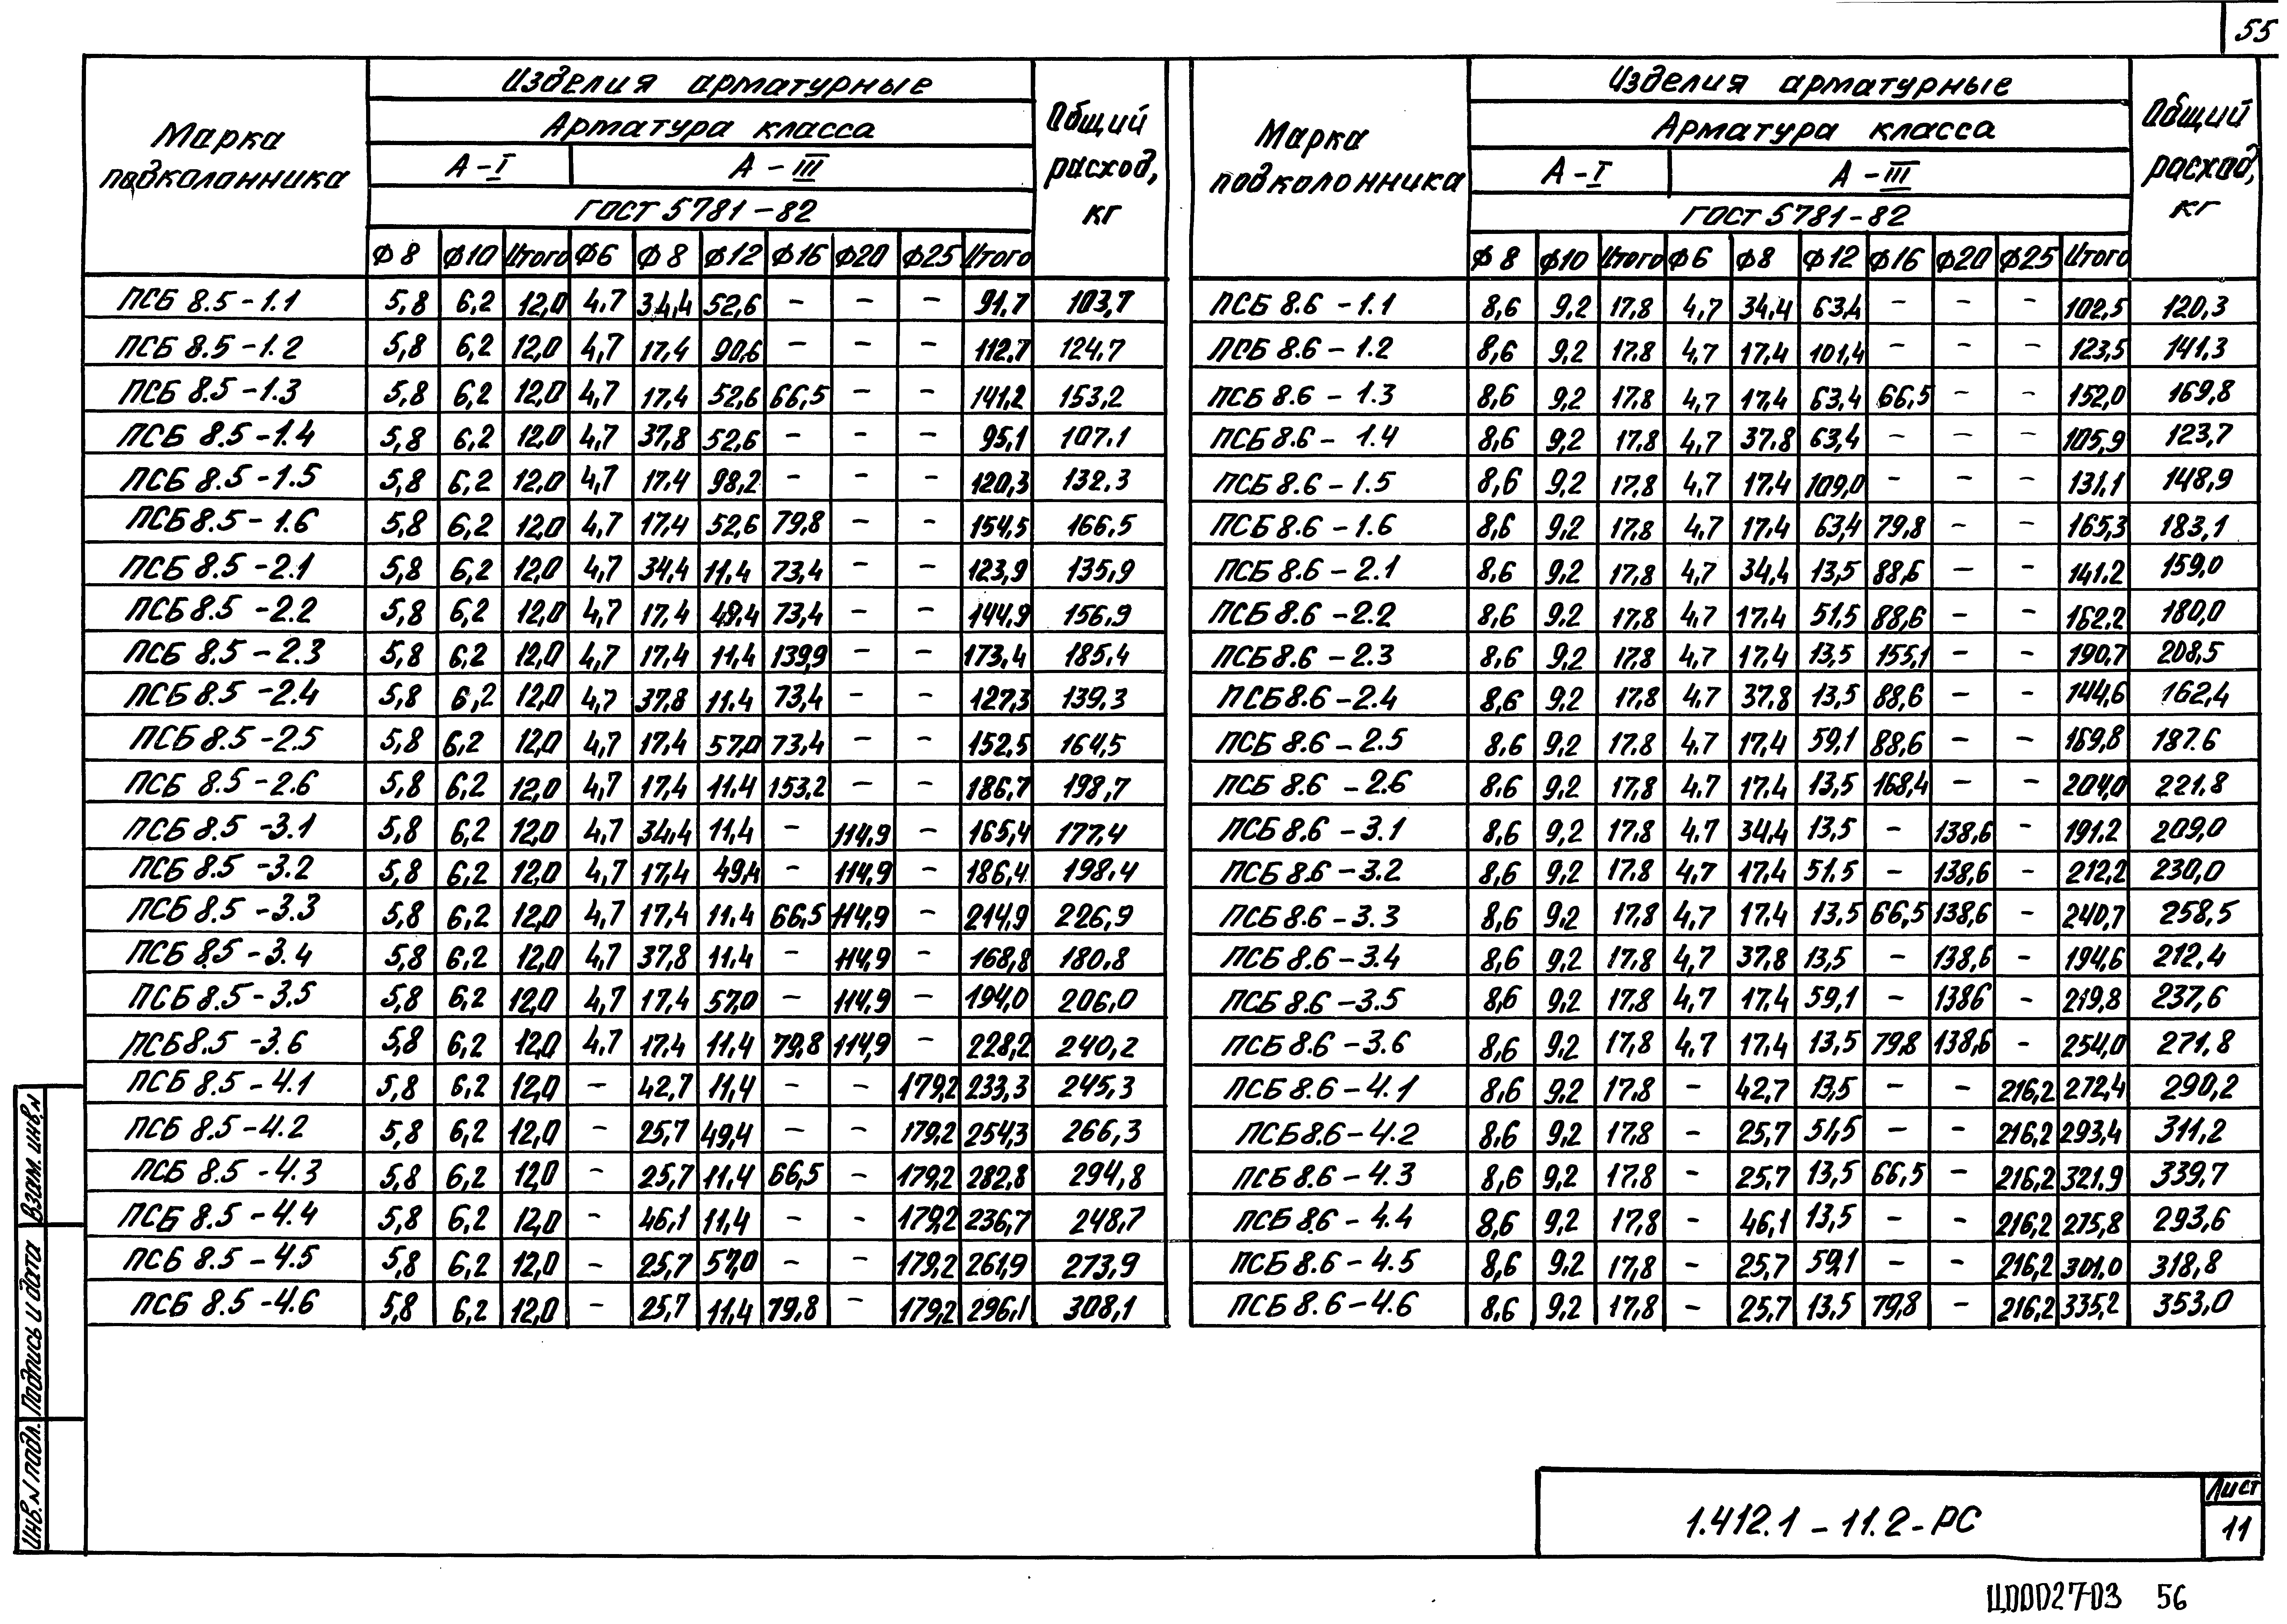 55
Марка подколонника | Изделия арматурные | Общий расход, кг
Арматура класса
А-I | А-III
ГОСТ 5781-82
Ф8 | Ф10 | Итого | Ф6 | Ф8 | Ф12 | Ф16 | Ф20 | Ф25 | Итого
ПСБ 8.5-1.1 | 5,8 | 6,2 | 12,0 | 4,7 | 34,4 | 52,6 | - | - | - | 91,7 | 103,7
ПСБ 8.5-1.2 | 5,8 | 6,2 | 12,0 | 4,7 | 17,4 | 90,6 | - | - | - | 112,7 | 124,7
ПСБ 8.5-1.3 | 5,8 | 6,2 | 12,0 | 4,7 | 17,4 | 52,6 | 66,5 | - | - | 141,2 | 153,2
ПСБ 8.5-1.4 | 5,8 | 6,2 | 12,0 | 4,7 | 37,8 | 52,6 | - | - | - | 95,1 | 107,1
ПСБ 8.5-1.5 | 5,8 | 6,2 | 12,0 | 4,7 | 17,4 | 98,2 | - | - | - | 120,3 | 132.3
ПСБ 8.5-1.6 | 5,8 | 6,2 | 12,0 | 4,7 | 17,4 | 52,6 | 79,8 | - | - | 154,5 | 166,5
ПСБ 8.5-2.1 | 5,8 | 6,2 | 12,0 | 4,7 | 34,4 | 11,4 | 73,4 | - | - | 123,9 | 135,9
ПСБ 8.5-2.2 | 5,8 | 6,2 | 12,0 | 4,7 | 17,4 | 49,4 | 73,4 | - | - | 144,9 | 156,9
ПСБ 8.5-2.3 | 5,8 | 6,2 | 12,0 | 4,7 | 17,4 | 11,4 | 139,9 | - | - | 173,4 | 185,4
ПСБ 8.5-2.4 | 5,8 | 6,2 | 12,0 | 4,7 | 37,8 | 11,4 | 73,4 | - | - | 127,3 | 139,3
ПСБ 8.5-2.5 | 5,8 | 6,2 | 12,0 | 4,7 | 17,4 | 57,0 | 73,4 | - | - | 152,5 | 164,5
ПСБ 8.5-2.6 | 5,8 | 6,2 | 12,0 | 4,7 | 17,4 | 11,4 | 153,2 | - | - | 186,7 | 198,7
ПСБ 8.5-3.1 | 5,8 | 6,2 | 12,0 | 4,7 | 34,4 | 11,4 | - | 114,9 | - | 165,4 | 177,4
ПСБ 8.5-3.2 | 5,8 | 6,2 | 12,0 | 4,7 | 17,4 | 49,4 | - | 114,9 | - | 186,4 | 198,4
ПСБ 8.5-3.3 | 5,8 | 6,2 | 12,0 | 4,7 | 17,4 | 11,4 | 66,5 | 114,9 | - | 214,9 | 226,9
ПСБ 8.5-3.4 | 5,8 | 6,2 | 12,0 | 4,7 | 37,8 | 11,4 | - | 114,9 | - | 168,8 | 180,8
ПСБ 8.5-3.5 | 5,8 | 6,2 | 12,0 | 4,7 | 17,4 | 57,0 | - | 114,9 | - | 194,0 | 206,0
ПСБ 8.5-3.6 | 5,8 | 6,2 | 12,0 | 4,7 | 17,4 | 11,4 | 79,8 | 114,9 | - | 228,2 | 240,2
ПСБ 8.5-4.1 | 5,8 | 6,2 | 12,0 | - | 42,7 | 11,4 | - | - | 179,2 | 233,3 | 245,3
ПСБ 8.5-4.2 | 5,8 | 6,2 | 12,0 | - | 25,7 | 49,4 | - | - | 179,2 | 254,3 | 266,3
ПСБ 8.5-4.3 | 5,8 | 6,2 | 12,0 | - | 25,7 | 11,4 | 66,5 | - | 179,2 | 282,8 | 294,8
ПСБ 8.5-4.4 | 5,8 | 6,2 | 12,0 | - | 46,1 | 11,4 | - | - | 179,2 | 236,7 | 248,7
ПСБ 8.5-4.5 | 5,8 | 6,2 | 12,0 | - | 25,7 | 57,0 | - | - | 179,2 | 261,9 | 273,9
ПСБ 8.5-4.6 | 5,8 | 6,2 | 12,0 | - | 25,7 | 11,4 | 79,8 | - | 179,2 | 296,1 | 308,1
Марка подколонника | Изделия арматурные | Общий расход, кг
Арматура класса
А-I | А-III
ГОСТ 5781-82
Ф8 | Ф10 | Итого | Ф6 | Ф8 | Ф12 | Ф16 | Ф20 | Ф25 | Итого
ПСБ 8.6-1.1 | 8,6 | 9,2 | 17,8 | 4,7 | 34,4 | 63,4 | - | - | - | 102,5 | 120,3
ПСБ 8.6-1.2 | 8,6 | 9,2 | 17,8 | 4,7 | 17,4 | 101,4 | - | - | - | 123,5 | 141,3
ПСБ 8.6-1.3 | 8,6 | 9,2 | 17,8 | 4,7 | 17,4 | 63,4 | 66,5 | - | - | 152,0 | 169,8
ПСБ 8.6-1.4 | 8,6 | 9,2 | 17,8 | 4,7 | 37,8 | 63,4 | - | - | - | 105,9 | 123,7
ПСБ 8.6-1.5 | 8,6 | 9,2 | 17,8 | 4,7 | 17,4 | 109,0 | - | - | - | 131,1 | 148,9
ПСБ 8.6-1.6 | 8,6 | 9,2 | 17,8 | 4,7 | 17,4 | 63,4 | 79,8 | - | - | 165,3 | 183,1
ПСБ 8.6-2.1 | 8,6 | 9,2 | 17,8 | 4,7 | 34,4 | 13,5 | 88,6 | - | - | 141,2 | 159,0
ПСБ 8.6-2.2 | 8,6 | 9,2 | 17,8 | 4,7 | 17,4 | 51,5 | 88,6 | - | - | 162,2 | 180,0
ПСБ 8.6-2.3 | 8,6 | 9,2 | 17,8 | 4,7 | 17,4 | 13,5 | 155,1 | - | - | 190,7 | 208,5
ПСБ 8.6-2.4 | 8,6 | 9,2 | 17,8 | 4,7 | 37,8 | 13,5 | 88,6 | - | - | 144,6 | 162,4
ПСБ 8.6-2.5 | 8,6 | 9,2 | 17,8 | 4,7 | 17,4 | 59,1 | 88,6 | - | - | 169,8 | 187.6
ПСБ 8.6-2.6 | 8,6 | 9,2 | 17,8 | 4,7 | 17,4 | 13,5 | 168,4 | - | - | 204,0 | 221,8
ПСБ 8.6-3.1 | 8,6 | 9,2 | 17,8 | 4,7 | 34,4 | 13,5 | - | 138,6 | - | 191,2 | 209,0
ПСБ 8.6-3.2 | 8,6 | 9,2 | 17.8 | 4,7 | 17,4 | 51.5 | - | 138,6 | - | 212,2 | 230,0
ПСБ 8.6-3.3 | 8,6 | 9,2 | 17,8 | 4,7 | 17,4 | 13,5 | 66,5 | 138,6 | - | 240,7 | 258,5
ПСБ 8.6-3.4 | 8,6 | 9,2 | 17,8 | 4,7 | 37,8 | 13,5 | - | 138,6 | - | 194,6 | 212,4
ПСБ 8.6-3.5 | 8,6 | 9,2 | 17,8 | 4,7 | 17,4 | 59,1 | - | 1386 | - | 219,8 | 237,6
ПСБ 8.6-3.6 | 8,6 | 9,2 | 17,8 | 4,7 | 17,4 | 13,5 | 79,8 | 138,6 | - | 254,0 | 271,8
ПСБ 8.6-4.1 | 8,6 | 9,2 | 17,8 | - | 42,7 | 13,5 | - | - | 216,2 | 272,4 | 290,2
ПСБ 8.6-4.2 | 8,6 | 9,2 | 17,8 | - | 25,7 | 51,5 | - | - | 216,2 | 293,4 | 311,2
ПСБ 8.6-4.3 | 8,6 | 9,2 | 17,8 | - | 25,7 | 13,5 | 66,5 | - | 216,2 | 321,9 | 339,7
ПСБ 8.6-4.4 | 8,6 | 9,2 | 17,8 | - | 46,1 | 13,5 | - | - | 216,2 | 275,8 | 293,6
ПСБ 8.6-4.5 | 8,6 | 9,2 | 17,8 | - | 25,7 | 59,1 | - | - | 216,2 | 301,0 | 318,8
ПСБ 8.6-4.6 | 8,6 | 9,2 | 17,8 | - | 25,7 | 13,5 | 79,8 | - | 216,2 | 335,2 | 353,0
Взам. инв. N
Подпись и дата
Инв. N подл.
1.412.1-11.2-РС
Лист
11
Ц00027-03 56